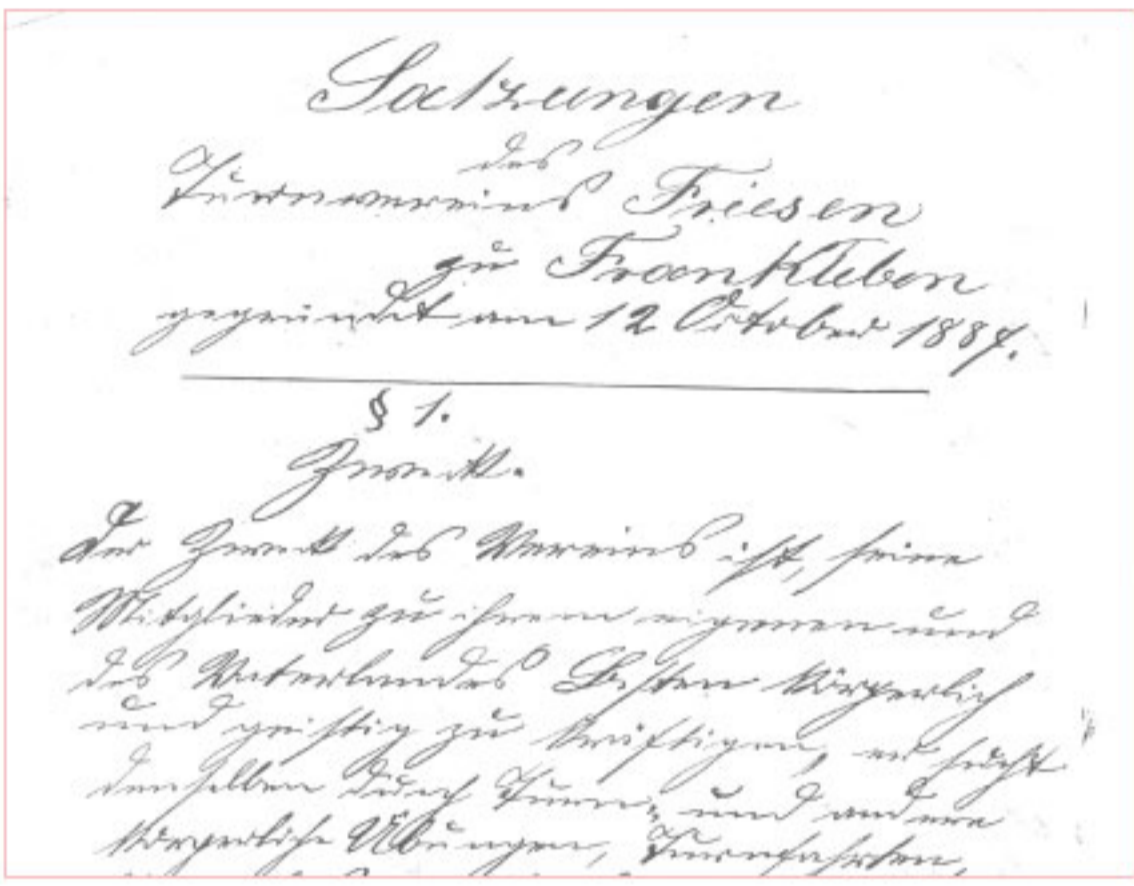 Satzungen
des
Turnvereins Friesen
zu Frankleben
gegründet am 12 October 1887.
§ 1.
Zweck.
Der Zweck des Vereins ist, seine
Mitglieder zu ihrem eigenen und
des Vaterlandes Besten körperlich
und geistig zu kräftigen, er sucht
denselben durch Turn- und andere
körperliche Übungen, Turnfahrten,